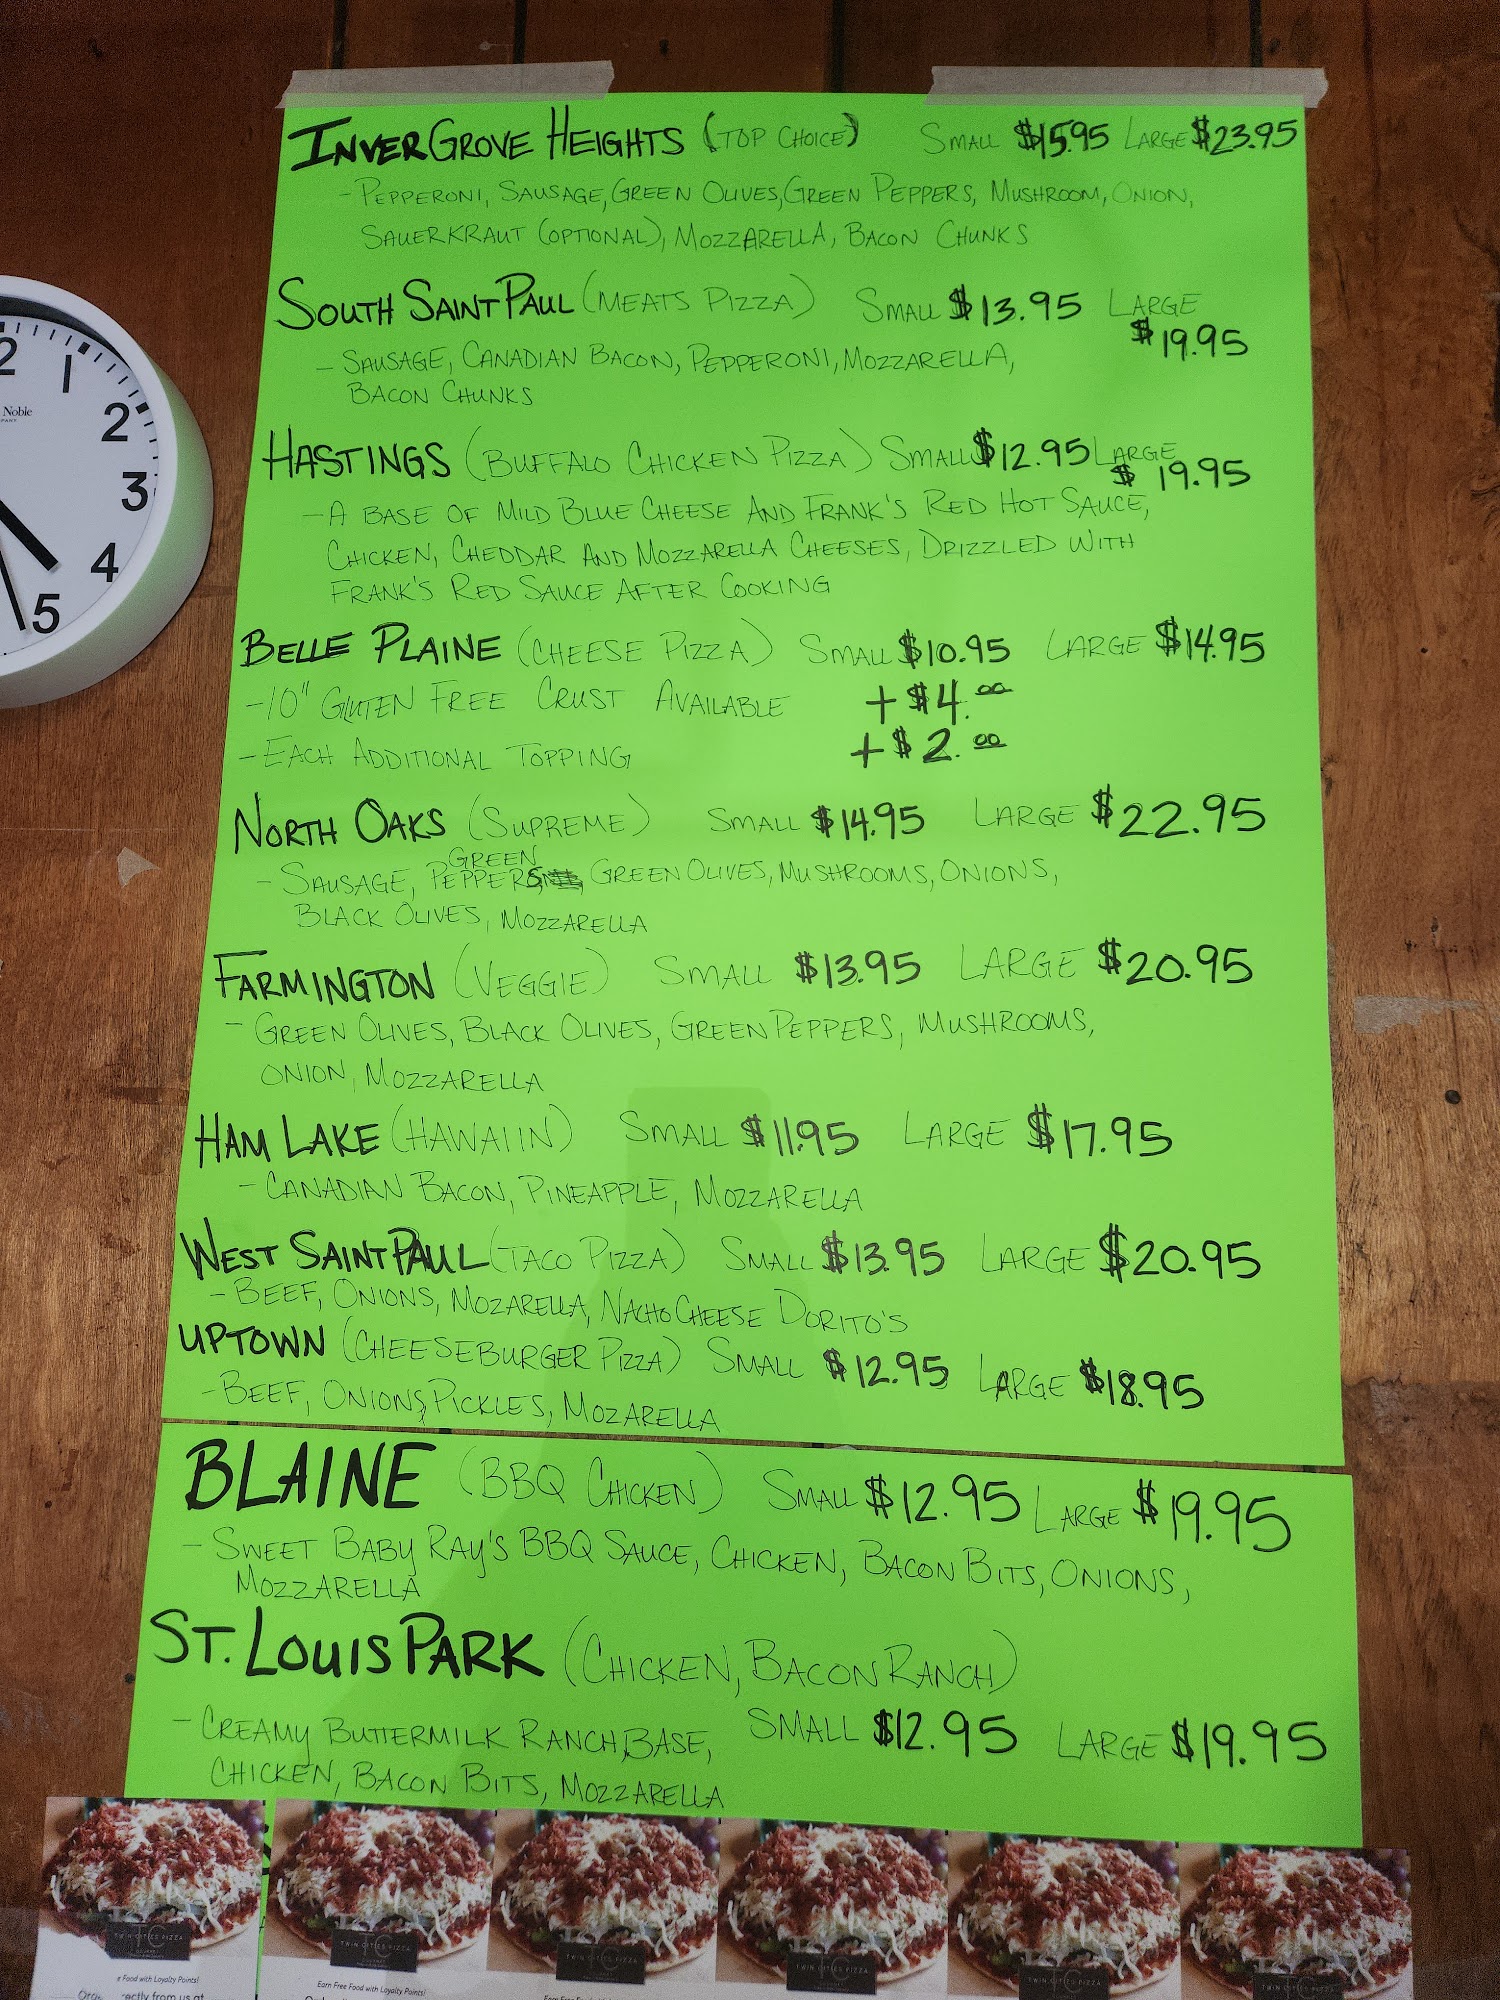 INVER GROVE HEIGHTS (TOP CHOICE) SMALL $15.95 LARGE $23.95
- PEPPERONI, SAUSAGE, GREEN OLIVES, GREEN PEPPERS, MUSHROOM, ONION,
SAUERKRAUT (OPTIONAL), MOZZARELLA, BACON CHUNKS
SOUTH SAINT PAUL (MEATS PIZZA) SMALL $13.95 LARGE
$19.95
- SAUSAGE, CANADIAN BACON, PEPPERONI, MOZZARELLA,
BACON CHUNKS
HASTINGS (BUFFALO CHICKEN PIZZA) SMALL $12.95 LARGE
$19.95
- A BASE OF MILD BLUE CHEESE AND FRANK'S RED HOT SAUCE,
CHICKEN, CHEDDAR AND MOZZARELLA CHEESES, DRIZZLED WITH
FRANK'S RED SAUCE AFTER COOKING
BELLE PLAINE (CHEESE PIZZA) SMALL $10.95 LARGE $14.95
- 10" GLUTEN FREE CRUST AVAILABLE +$4.00
- EACH ADDITIONAL TOPPING +$2.00
NORTH OAKS (SUPREME) SMALL $14.95 LARGE $22.95
GREEN
- SAUSAGE, PEPPERS, GREEN OLIVES, MUSHROOMS, ONIONS,
BLACK OLIVES, MOZZARELLA
FARMINGTON (VEGGIE) SMALL $13.95 LARGE $20.95
- GREEN OLIVES, BLACK OLIVES, GREEN PEPPERS, MUSHROOMS,
ONION, MOZZARELLA
HAM LAKE (HAWAIIN) SMALL $11.95 LARGE $17.95
- CANADIAN BACON, PINEAPPLE, MOZZARELLA
WEST SAINT PAUL (TACO PIZZA) SMALL $13.95 LARGE $20.95
- BEEF, ONIONS, MOZARELLA, NACHO CHEESE DORITO'S
UPTOWN (CHEESEBURGER PIZZA) SMALL $12.95 LARGE $18.95
- BEEF, ONIONS, PICKLES, MOZARELLA
BLAINE (BBQ CHICKEN) SMALL $12.95 LARGE $19.95
- SWEET BABY RAY'S BBQ SAUCE, CHICKEN, BACON BITS, ONIONS,
MOZZARELLA
ST. LOUIS PARK (CHICKEN, BACON RANCH)
SMALL $12.95 LARGE $19.95
- CREAMY BUTTERMILK RANCH BASE,
CHICKEN, BACON BITS, MOZZARELLA
2 1 2 3 4 5
Noble
TC
TWIN CITIES PIZZA
TC
TWIN CITIES PIZZA
TWIN CITIES PIZZA
TC
TWIN CITIES PIZZA
TWIN CITIES PIZZA
TWIN CITIES PIZZA
Food with Loyalty Points!
from us at
Earn Free Food with Loyalty Points!